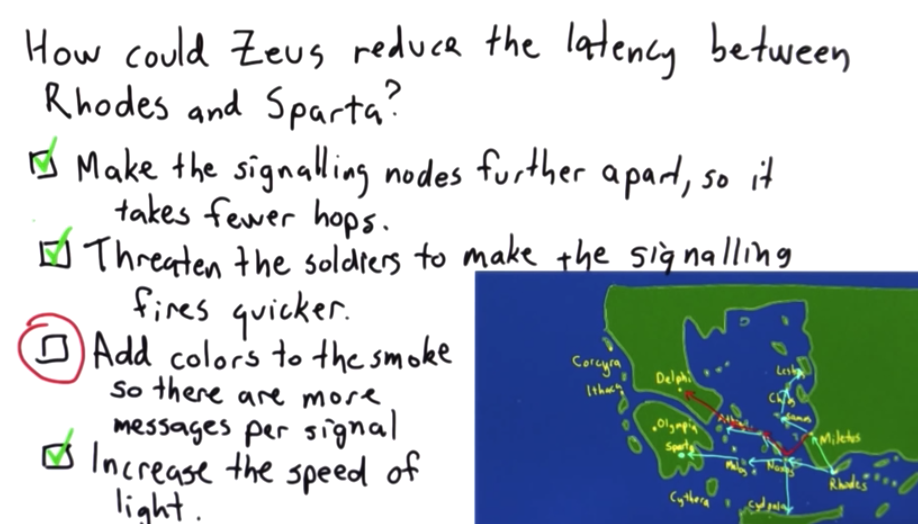 How could Zeus reduce the latency between
Rhodes and Sparta?
Make the signalling nodes further apart, so it
takes fewer hops.
Threaten the soldiers to make the signalling
fires quicker.
Add colors to the smoke
so there are more
messages per signal
Increase the speed of
light.
Corcyra
Ithaca
Delphi
Olympia
Sparta
Cythera
Naxos
Miletus
Rhodes